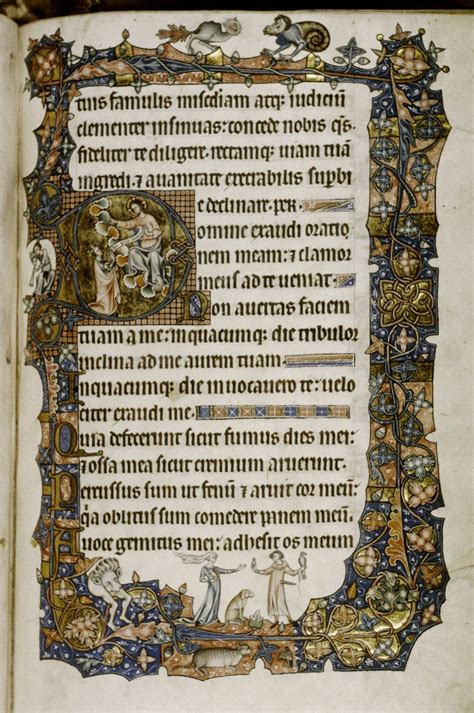 tuis famulis misediam atq; iudiciū
clementer insinuas: concede nobis q̄s.
fideliter te diligere. rectamq; uiam tuā
ingredi. ⁊ auanitate execrabilis suꝑbie
e declinare. per.
omine exaudi oratio
nem meam: ⁊ clamor
meus ad te ueniat.
Non auertas faciem
tuam a me: in quacumq; die tribulor
inclina ad me aurem tuam.
In quacumq; die inuocauero te: uelo
citer exaudi me.
Quia defecerunt sicut fumus dies mei:
⁊ ossa mea sicut cremium aruerunt.
Percussus sum ut fenū ⁊ aruit cor meū:
q̇a oblitus sum comedere panem meū.
A uoce gemitus mei: adhesit os meum